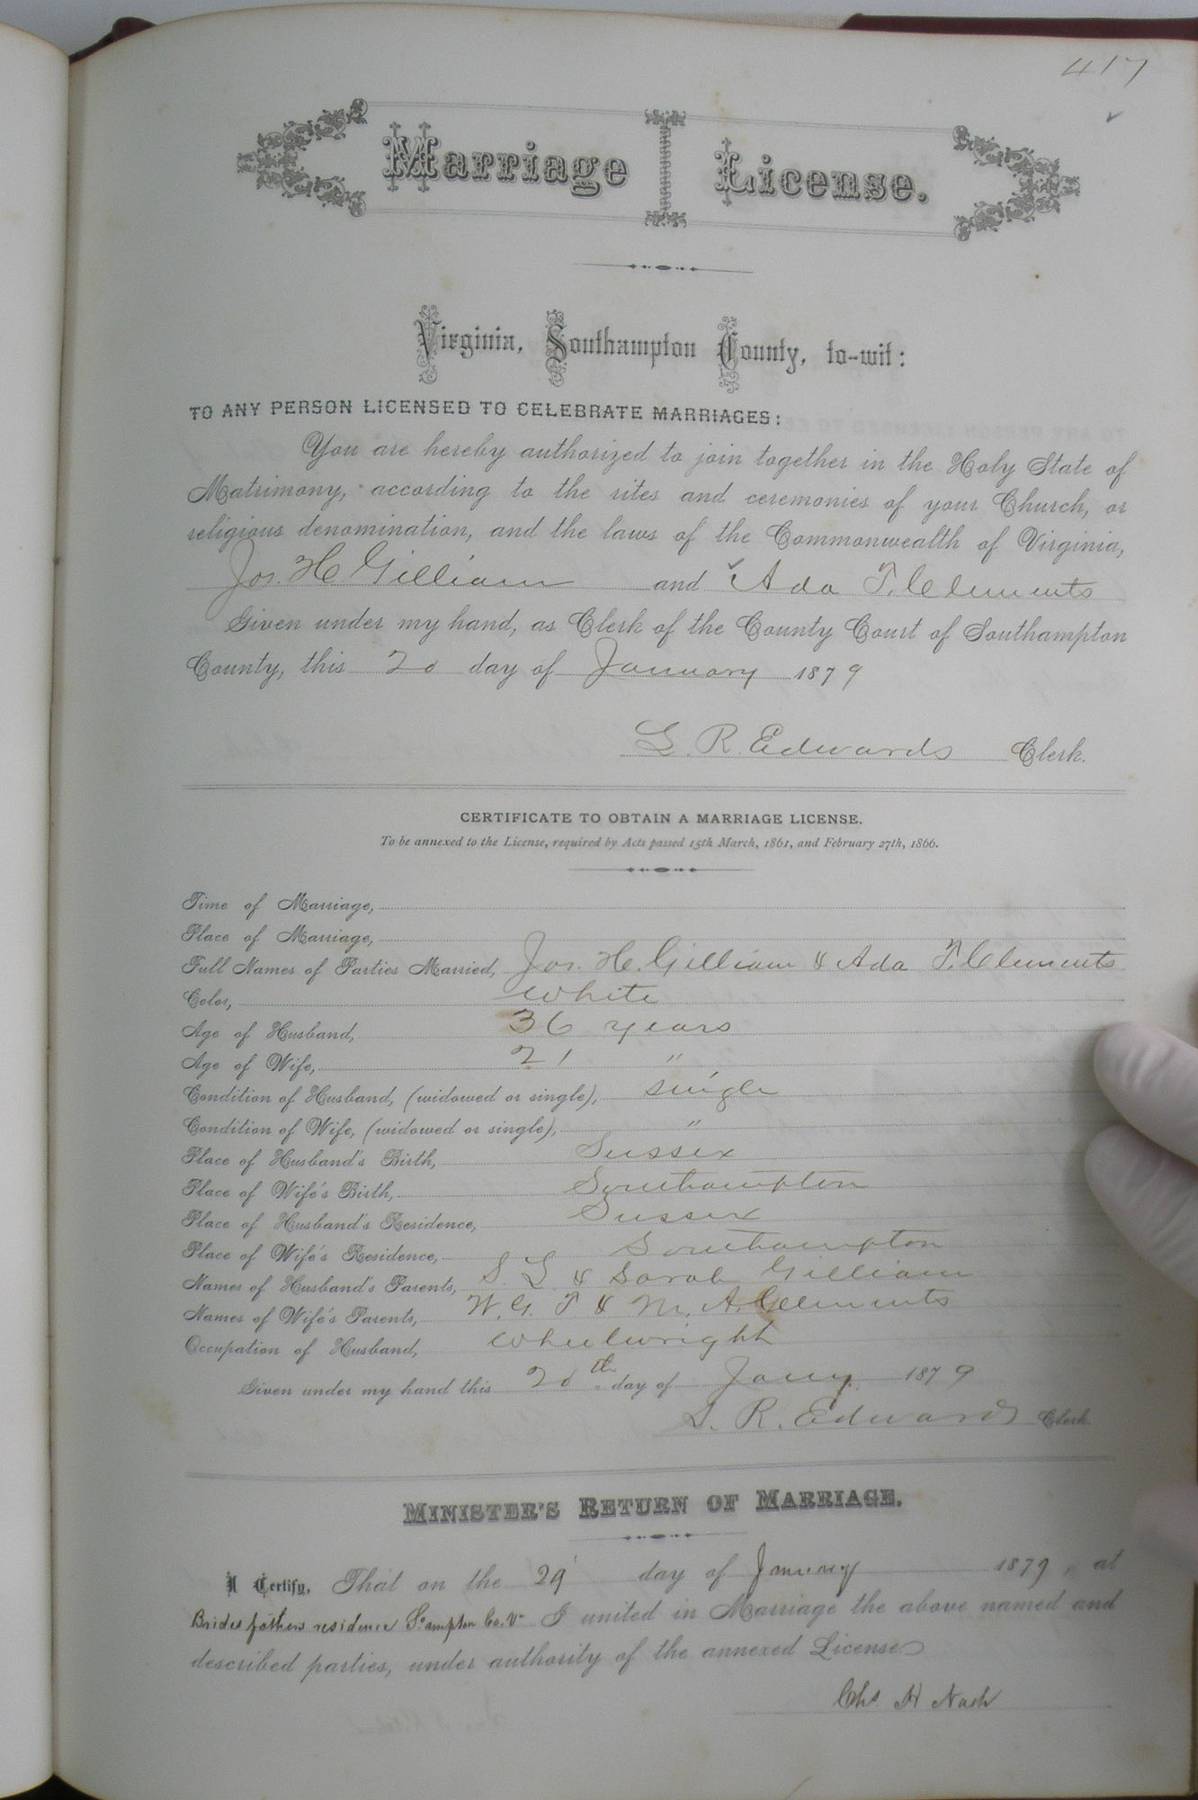 417
Marriage License.
Virginia, Southampton County, to-wit:
TO ANY PERSON LICENSED TO CELEBRATE MARRIAGES:
You are hereby authorized to join together in the Holy State of
Matrimony, according to the rites and ceremonies of your Church, or
religious denomination, and the laws of the Commonwealth of Virginia,
Jos. H Gilliam and Ada T. Clements
Given under my hand, as Clerk of the County Court of Southampton
County, this 20 day of January 1879
L. R. Edwards Clerk.
CERTIFICATE TO OBTAIN A MARRIAGE LICENSE.
To be annexed to the License, required by Acts passed 15th March, 1861, and February 27th, 1866.
Time of Marriage,
Place of Marriage,
Full Names of Parties Married, Jos. H. Gilliam & Ada T. Clements
Color, White
Age of Husband, 36 years
Age of Wife, 21 "
Condition of Husband, (widowed or single), single
Condition of Wife, (widowed or single), "
Place of Husband's Birth, Sussex
Place of Wife's Birth, Southampton
Place of Husband's Residence, Sussex
Place of Wife's Residence, Southampton
Names of Husband's Parents, S. L & Sarah Gilliam
Names of Wife's Parents, W. G. T & M. A. Clements
Occupation of Husband, Wheelwright
Given under my hand this 20th day of Jany. 1879
L. R. Edwards Clerk.
MINISTER'S RETURN OF MARRIAGE.
I Certify, That on the 29 day of January 1879, at
Brides fathers residence So.ampton Co. Va I united in Marriage the above named and
described parties, under authority of the annexed License
Chs. H Nash